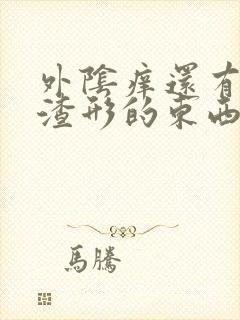 外陰痒還有
渣形的東西
馬騰